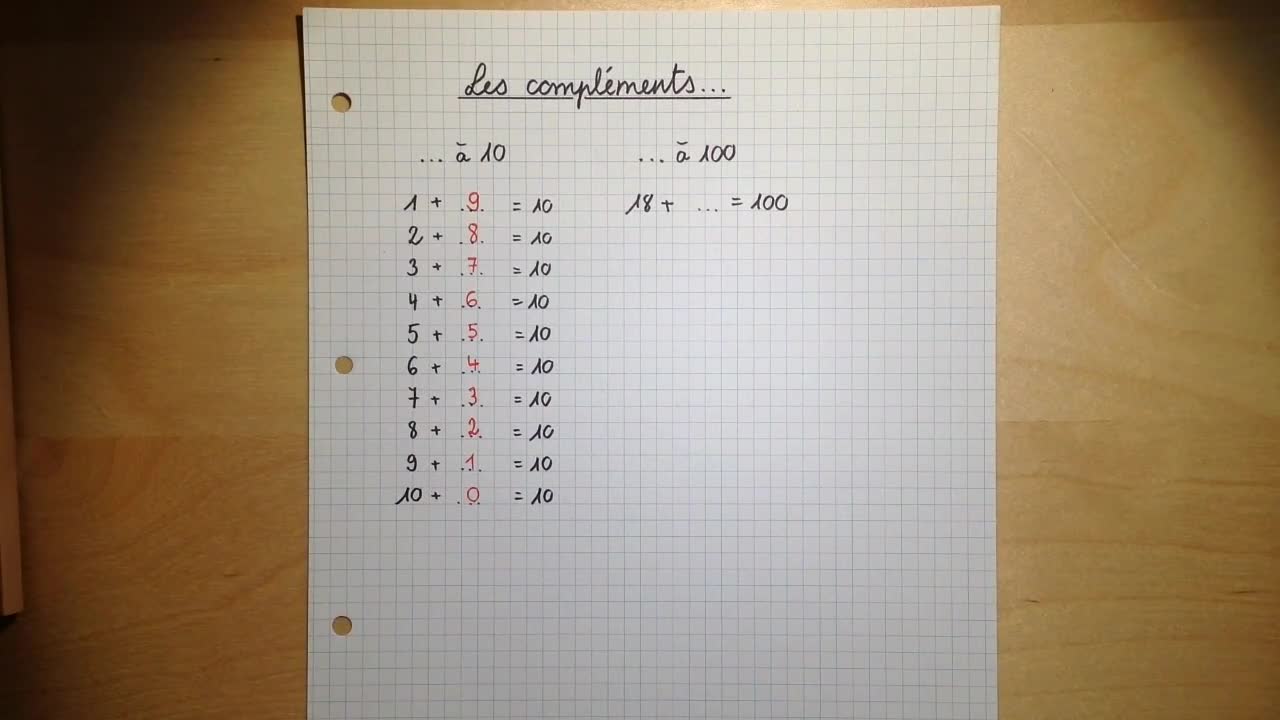 Les compléments...
... à 10
1 + .9. = 10
2 + .8. = 10
3 + .7. = 10
4 + .6. = 10
5 + .5. = 10
6 + .4. = 10
7 + .3. = 10
8 + .2. = 10
9 + .1. = 10
10 + .0. = 10
... à 100
18 + ... = 100